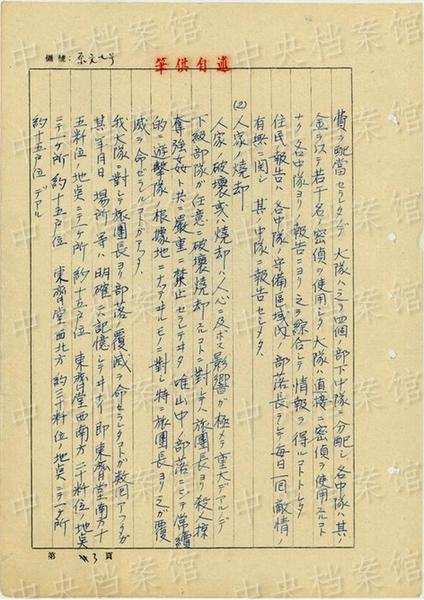 編號：京文九号
筆供自述
費ヲ配當セラレタノデ大隊ハ之ヲ四個ノ部下中隊ニ分配シ各中隊ハ其ノ
金ヲ以テ若干名ノ密偵ヲ使用シタ大隊ハ直接ニ密偵ヲ使用スルコト
ナク各中隊ヨリノ報告ニヨリ之ヲ綜合シテ情報ヲ得ルコトトシタ
住民ノ報告ハ各中隊ノ守備区域内ノ部落長ヲシテ毎日一回敵情ノ
有無ニ関シ其ノ中隊ニ報告セシメタ、
(2) 人家ノ焼却
人家ノ破壊或ハ焼却ハ人心ニ及ボス影響ガ極メテ重大デアルノデ
下級部隊ガ任意ニ破壊焼却スルコトニ對シテハ旅團長ヨリ殺人掠
奪強姦ト共ニ嚴重ニ禁止セラレテヰタ唯山中ノ部落ニシテ常續
的ノ遊撃隊ノ根據地ニナッテヰルモノニ對シ特ニ旅團長ヨリ之ガ覆
滅ヲ命ゼラルルコトガアッタ、
我大隊ニ對シテ旅團長ヨリ部落ノ覆滅ヲ命セラレタコトガ数回アッタガ
其ノ年月日場所等ハ明確ニハ記憶シテヰナイガ即東齊堂南方十
五粁位ノ地点ニテ一ケ所約十五戸位東齊堂西南方二十粁位ノ地点
ニテ一ケ所約十五戸位東齊堂西北方約三十粁位ノ地点ニテ一ケ所
約十五戸位デアル
第 3 頁
中央档案馆